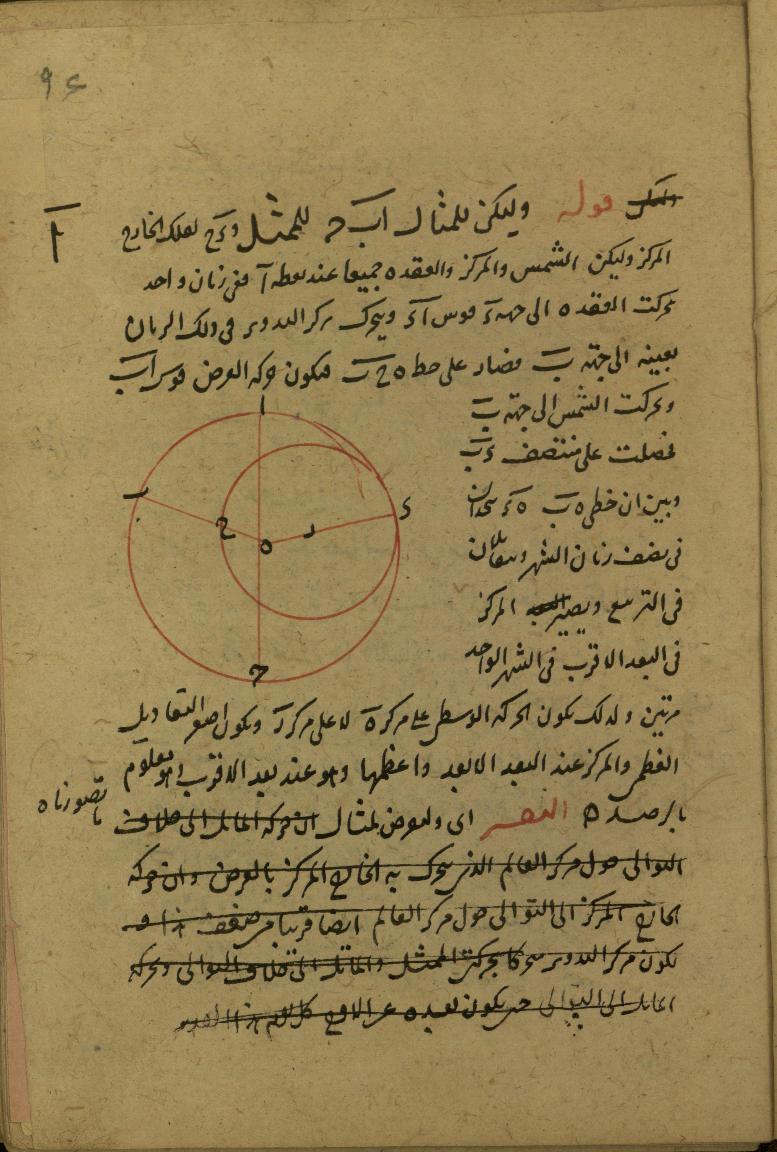 ٩٤
قوله وليكن للمثال اب ح للممثل و ء ح لفلك الخارج
أ
المركز وليكن الشمس والمركز والعقده جميعا عند نقطه آ ففي زمان واحد
تحركت العقده ه الى جهة ء قوس آ ء ويتحرك مركز التدوير في ذلك الزمان
بعينه الى جهة ب فصار على خط ه ح ب فيكون حركه العرض قوس اب
وتحركت الشمس الى جهة ب
فحصلت على منتصف ء ب
وبين ان خطى ه ب ه ء يتحدان
في نصف زمان الشهر ويتقابلان
في التربيع ويصير المركز
في البعد الاقرب في الشهر الواحد
مرتين ولذلك يكون الحركه الوسطى على مركز ه لا على مركز ر ويكون اصغر التعاديل
العظمى والمركز عند البعد الابعد واعظمها وهو عند بعد الاقرب معلوم
بالرصد ه التفسير اى وليعرض لمثال ان حركة المائل الى خلاف
ما تصورناه
التوالى حول مركز العالم الذى يتحرك به الخارج المركز بالعرض وان حركه
الخارج المركز الى التوالى حول مركز العالم ايضا قريبا من ضعف
يكون مركز التدوير متحركا بحركتى الممثل والمائل الى خلاف التوالى وحركه
الى التوالى حتى يكون بعده عن الاوج كل يوم
ا
ب
ح
ء
ه
ر
ح